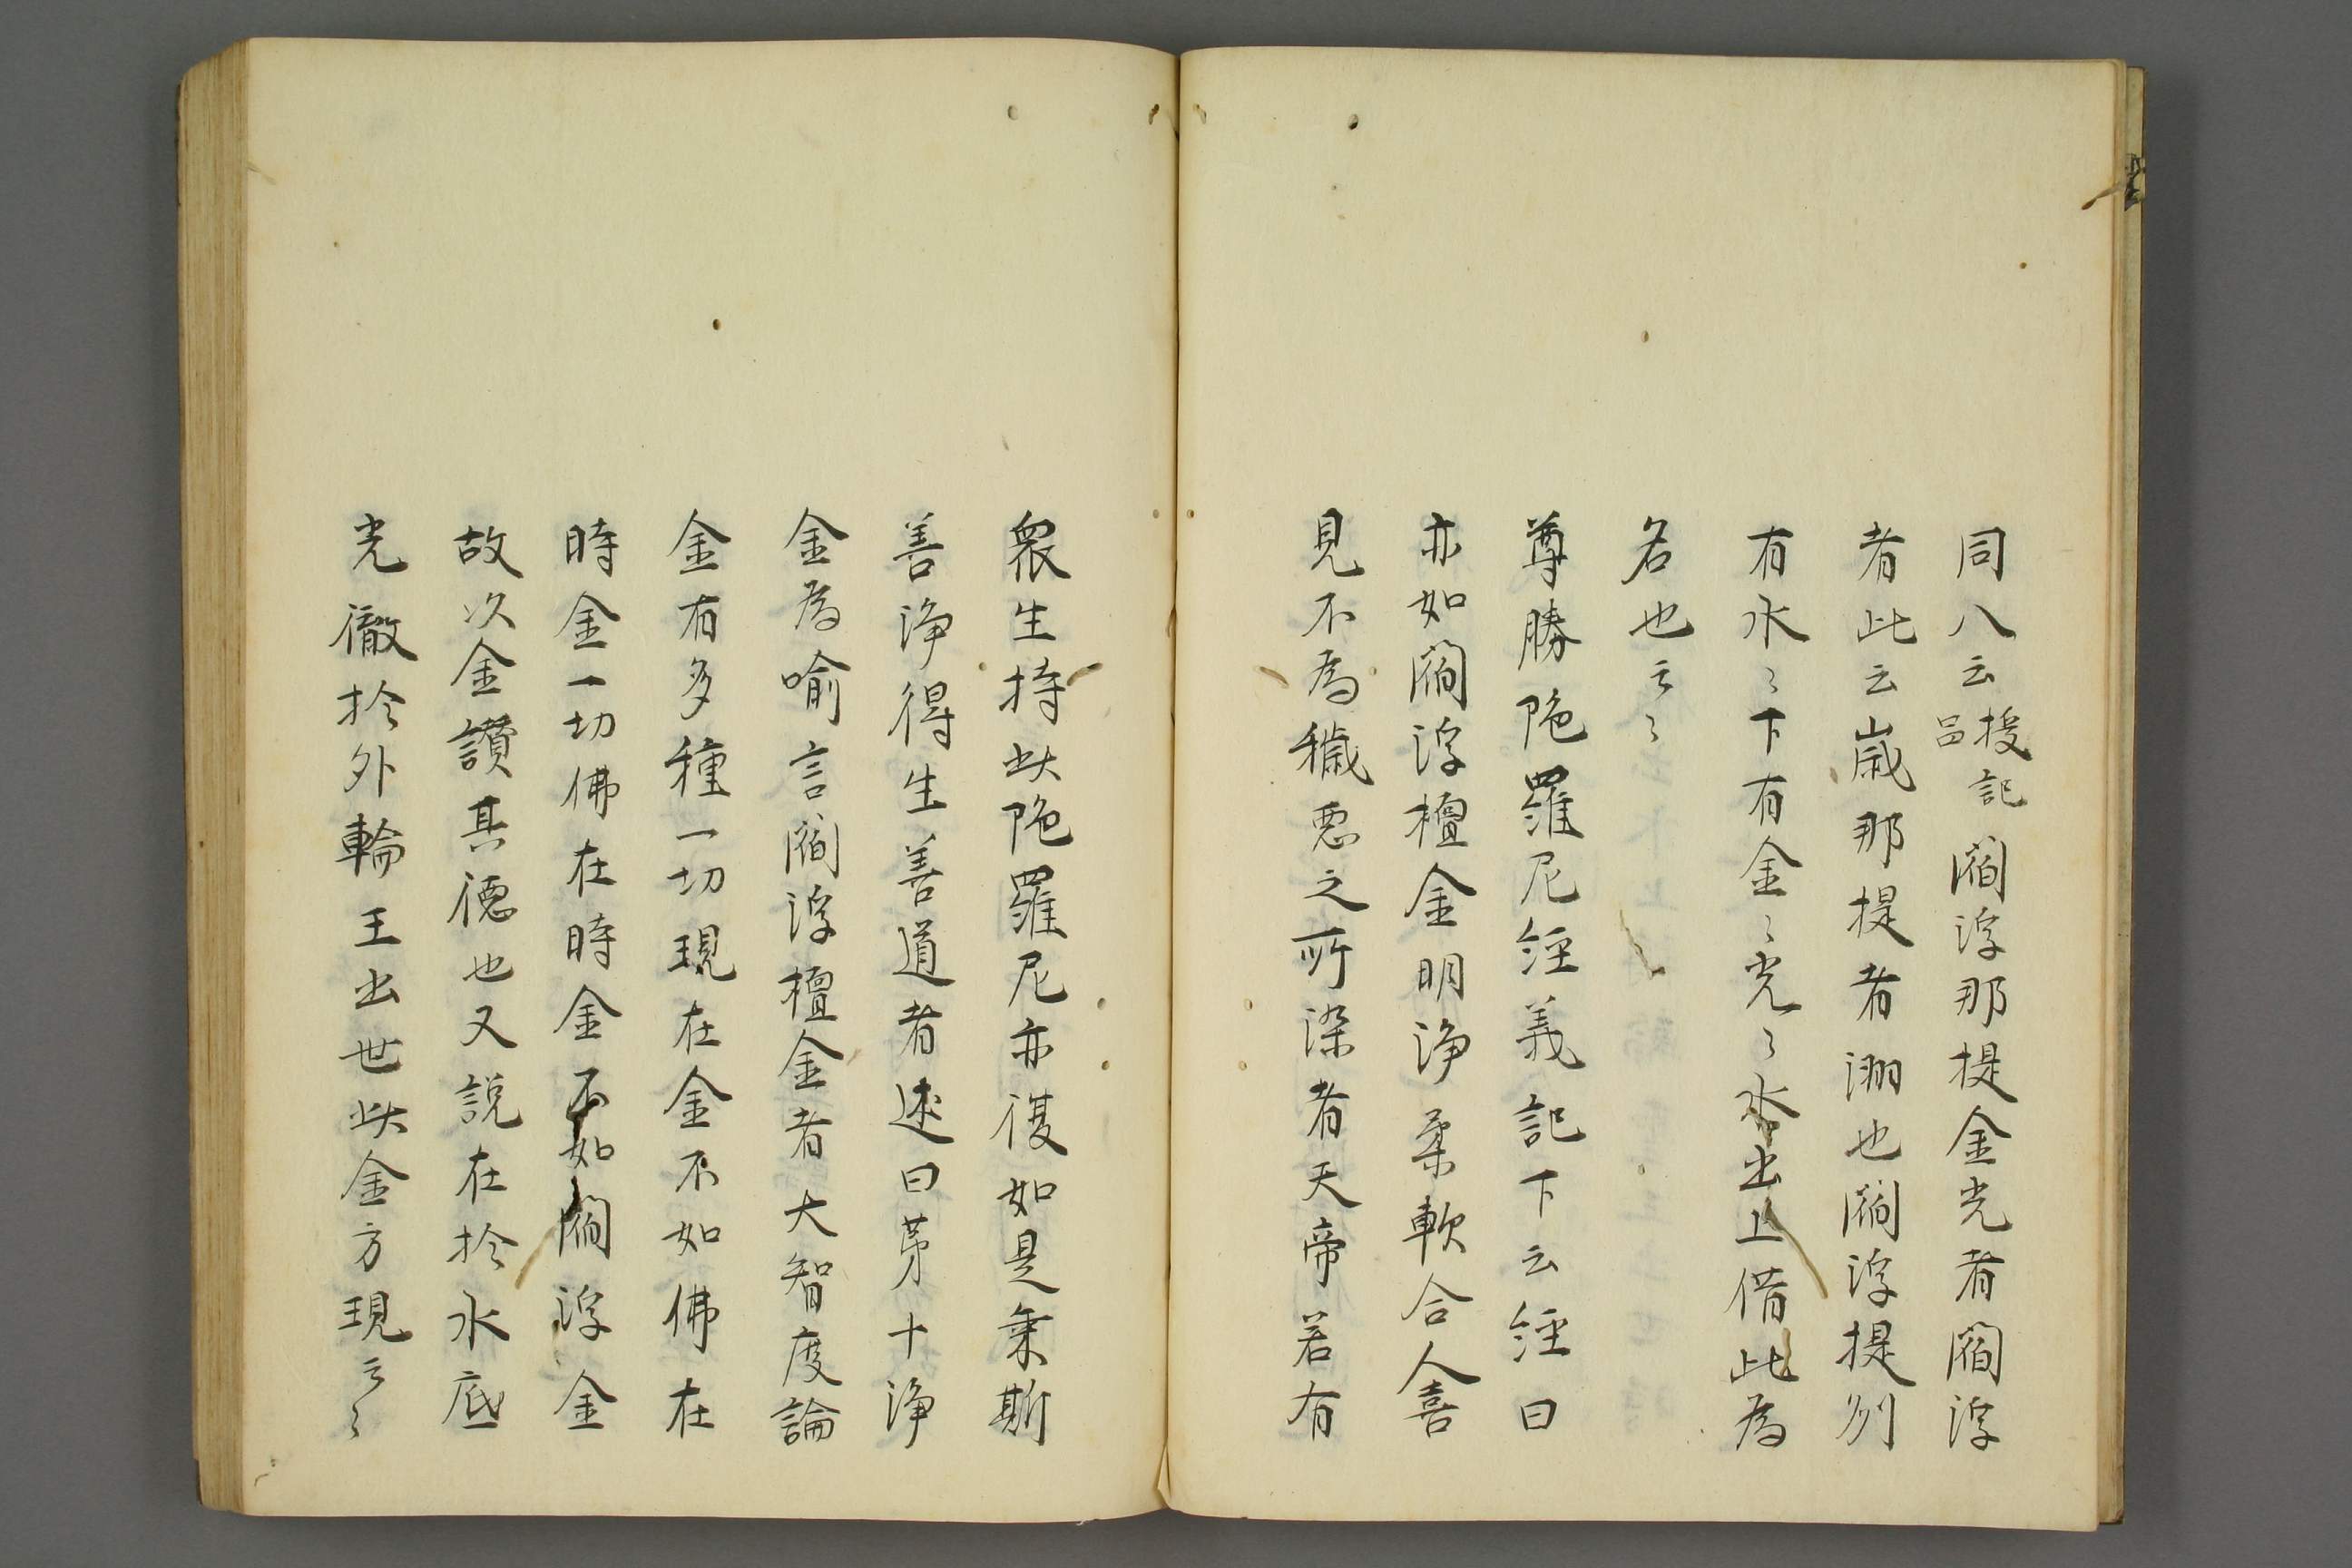 同八云授記品閻浮那提金光者閻浮
者此云嵗那提者洲也閻浮提別
有水〻下有金〻光〻水出上借此為
名也云〻
尊勝陁羅尼經義記下云經曰
亦如閻浮檀金明浄柔軟合人喜
見不為穢惡之所染者天帝若有
衆生持此陁羅尼亦復如是乗斯
善浄得生善道者述曰苐十浄
金為喻言閻浮檀金者大智度論
金有多種一切現在金不如佛在
時金一切佛在時金不如閻浮金
故次金讚其德也又說在於水底
光徹於外輪王出世此金方現云〻